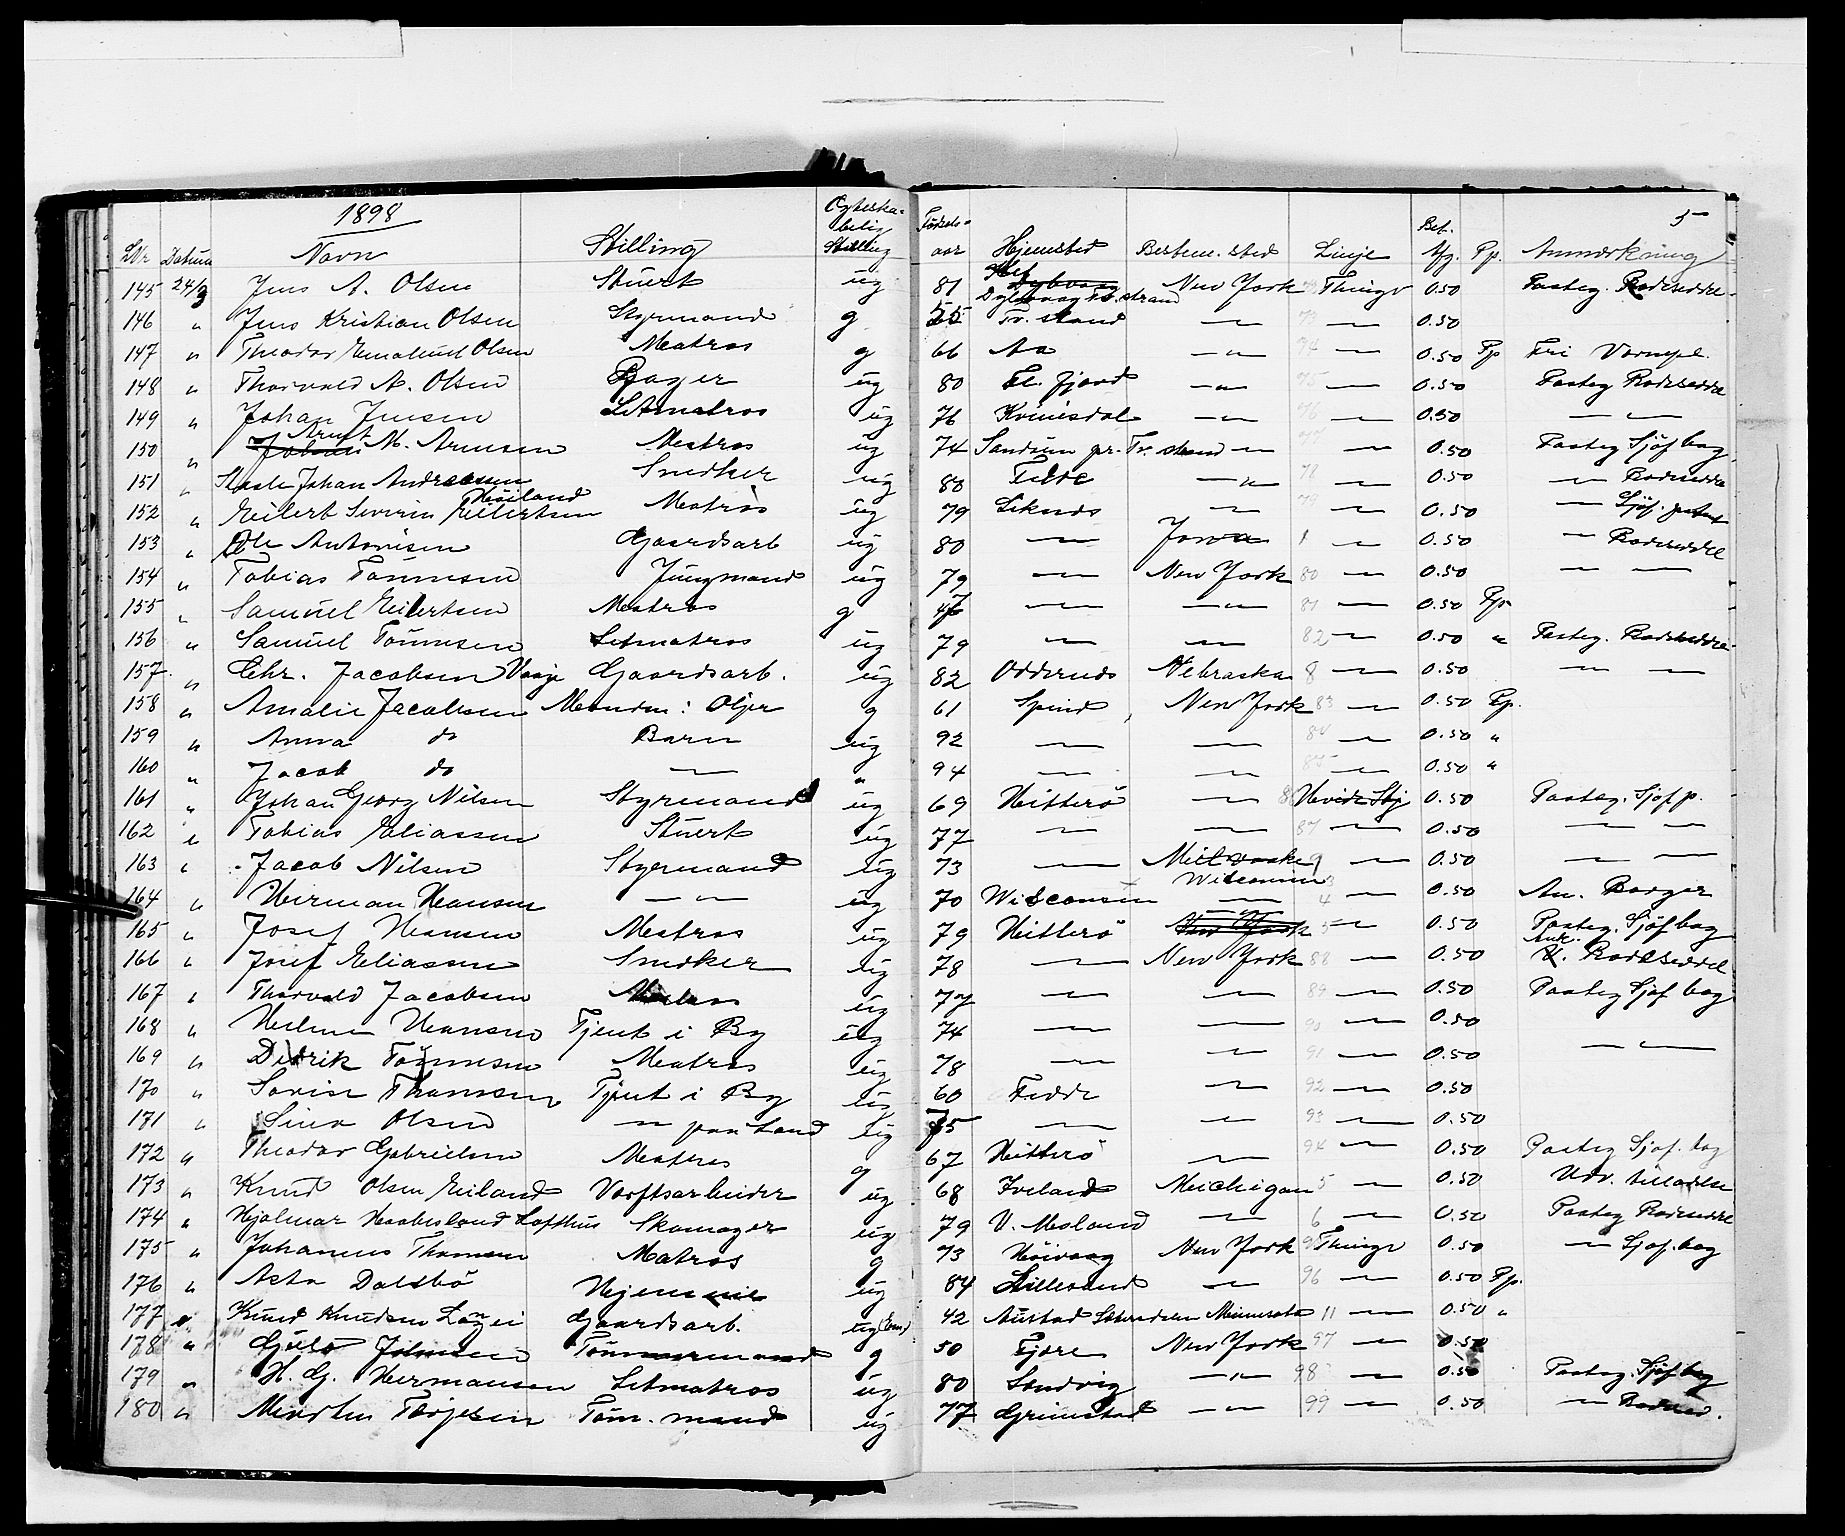 1898
5
LNr Datum Navn Stilling Egteska- belig Stilling Fødsels- aar Hjemsted Bestem. sted Linje Bet. Afg. Pp. Anmærkning
145 24/9 Jens A. Olsen Stuert ug 81 Dybvaag Tv.strand New York Thingv 0.50 Pasteg. Rodeseddel
146 " Jens Kristian Olsen Styrmand g 55 Tv. strand — " — 73 — 0.50
147 " Theodor Emanuel Olsen Matros g 66 Aa — " — 74 — 0.50 Pp Fri Vernepl.
148 " Thorvald A. Olsen Bager ug 80 Fl. fjord — " — 75 — 0.50 Pasteg Rodeseddel
149 " Johan Jensen Letmatros ug 76 Kvinesdal — " — 76 — 0.50 — —
150 " Arndt M. Arnesen Matros ug 74 Sandum pr. Tv. strand — " — — 0.50 Pasteg Sjøf bog
151 " Johan Andreasen Snedker ug 80 — " — 78 — 0.50 — Rodeseddel
152 " Eilert Severin Eilertsen Høiland Matros ug 79 Liknes — 79 — 0.50 — Sjøf. patent
153 " Ole Antonisen Gaardsarb ug 80 — Jowa 1 — 0.50 — Rodeseddel
154 " Tobias Tønnesen Jungmand ug 79 — New York 80 — 0.50 — —
155 " Samuel Eilertsen Matros g — — " — 81 — 0.50 Pp
156 " Samuel Tønnesen Letmatros ug 79 — — 82 — 0.50 " Pasteg. Rodeseddel
157 " Chr. Jacobsen Vaage Gaardsarb. ug 82 Oddernes Nebraska 8 — 0.50 — —
158 " Amalie Jacobsen Manden: Oljer g 61 Spind New York 83 — 0.50 Pp.
159 " Anna do Barn ug 92 — — 84 — 0.50 "
160 " Jacob do — " 94 — — 85 — 0.50 "
161 " Johan Georg Nilsen Styrmand ug 69 Hitterø — Hvide Stj 0.50 Pasteg. Sjøf p.
162 " Tobias Eliassen Stuert ug 77 — — 87 — 0.50 — —
163 " Jacob Nilsen Styrmand ug 73 — Milvauke Wisconsin 9 — 0.50 — —
164 " Herman Hansen — " — ug 70 Wisconsin — 4 — 0.50 Am. Borger
165 " Josef Hansen Matros ug 79 Hitterø New York 5 — 0.50 Pasteg. Sjøf bog
166 " Josef Eliassen Snedker ug 78 — New York 88 — 0.50 Rodeseddel
167 " Thorvald Jacobsen Matros ug 77 — — 89 — 0.50 Pasteg Sjøf bog
168 " Helene Hansen Tjent i By ug 74 — — 90 — 0.50
169 " Didrik Tønnesen Matros ug 78 — — 91 — 0.50 — —
170 " Sovine Thomsen Tjent i By ug 60 Fedde — 92 — 0.50
171 " Sina Olsen — " paa Land ug 75 — — 93 — 0.50
172 " Theodor Gabrielsen Matros g 67 Hitterø — 94 — 0.50 Pasteg Sjøf. bog
173 " Knud Olsen Eiland Værftsarbeider ug 68 Iveland Michigan 5 — 0.50 Udv. tilladelse
174 " Hjalmar Haabesland Lofthus Skomager ug 79 V. Moland — 6 — 0.50 Pasteg Rodeseddel
175 " Johannes Thomsen Matros g 73 Høivaag New York Thingv 0.50 — Sjøf. bog
176 " Asta Dalsbø Hjemme ug 84 Lillesand — 96 — 0.50 Pp.
177 " Knud Knudsen Gaardsarb. ug (Enk) 42 Austad Sætersdalen Minnesota 11 — 0.50 "
178 " Johnsen Tømmermand g 50 Fjære New York 97 — 0.50
179 " H. G. Hermansen Letmatros ug 80 Landvig — " — 98 — 0.50 Pasteg. Sjøf bog
180 " Terjesen Tøm. mand ug 77 Grimstad — " — 99 — 0.50 — Rodesed.